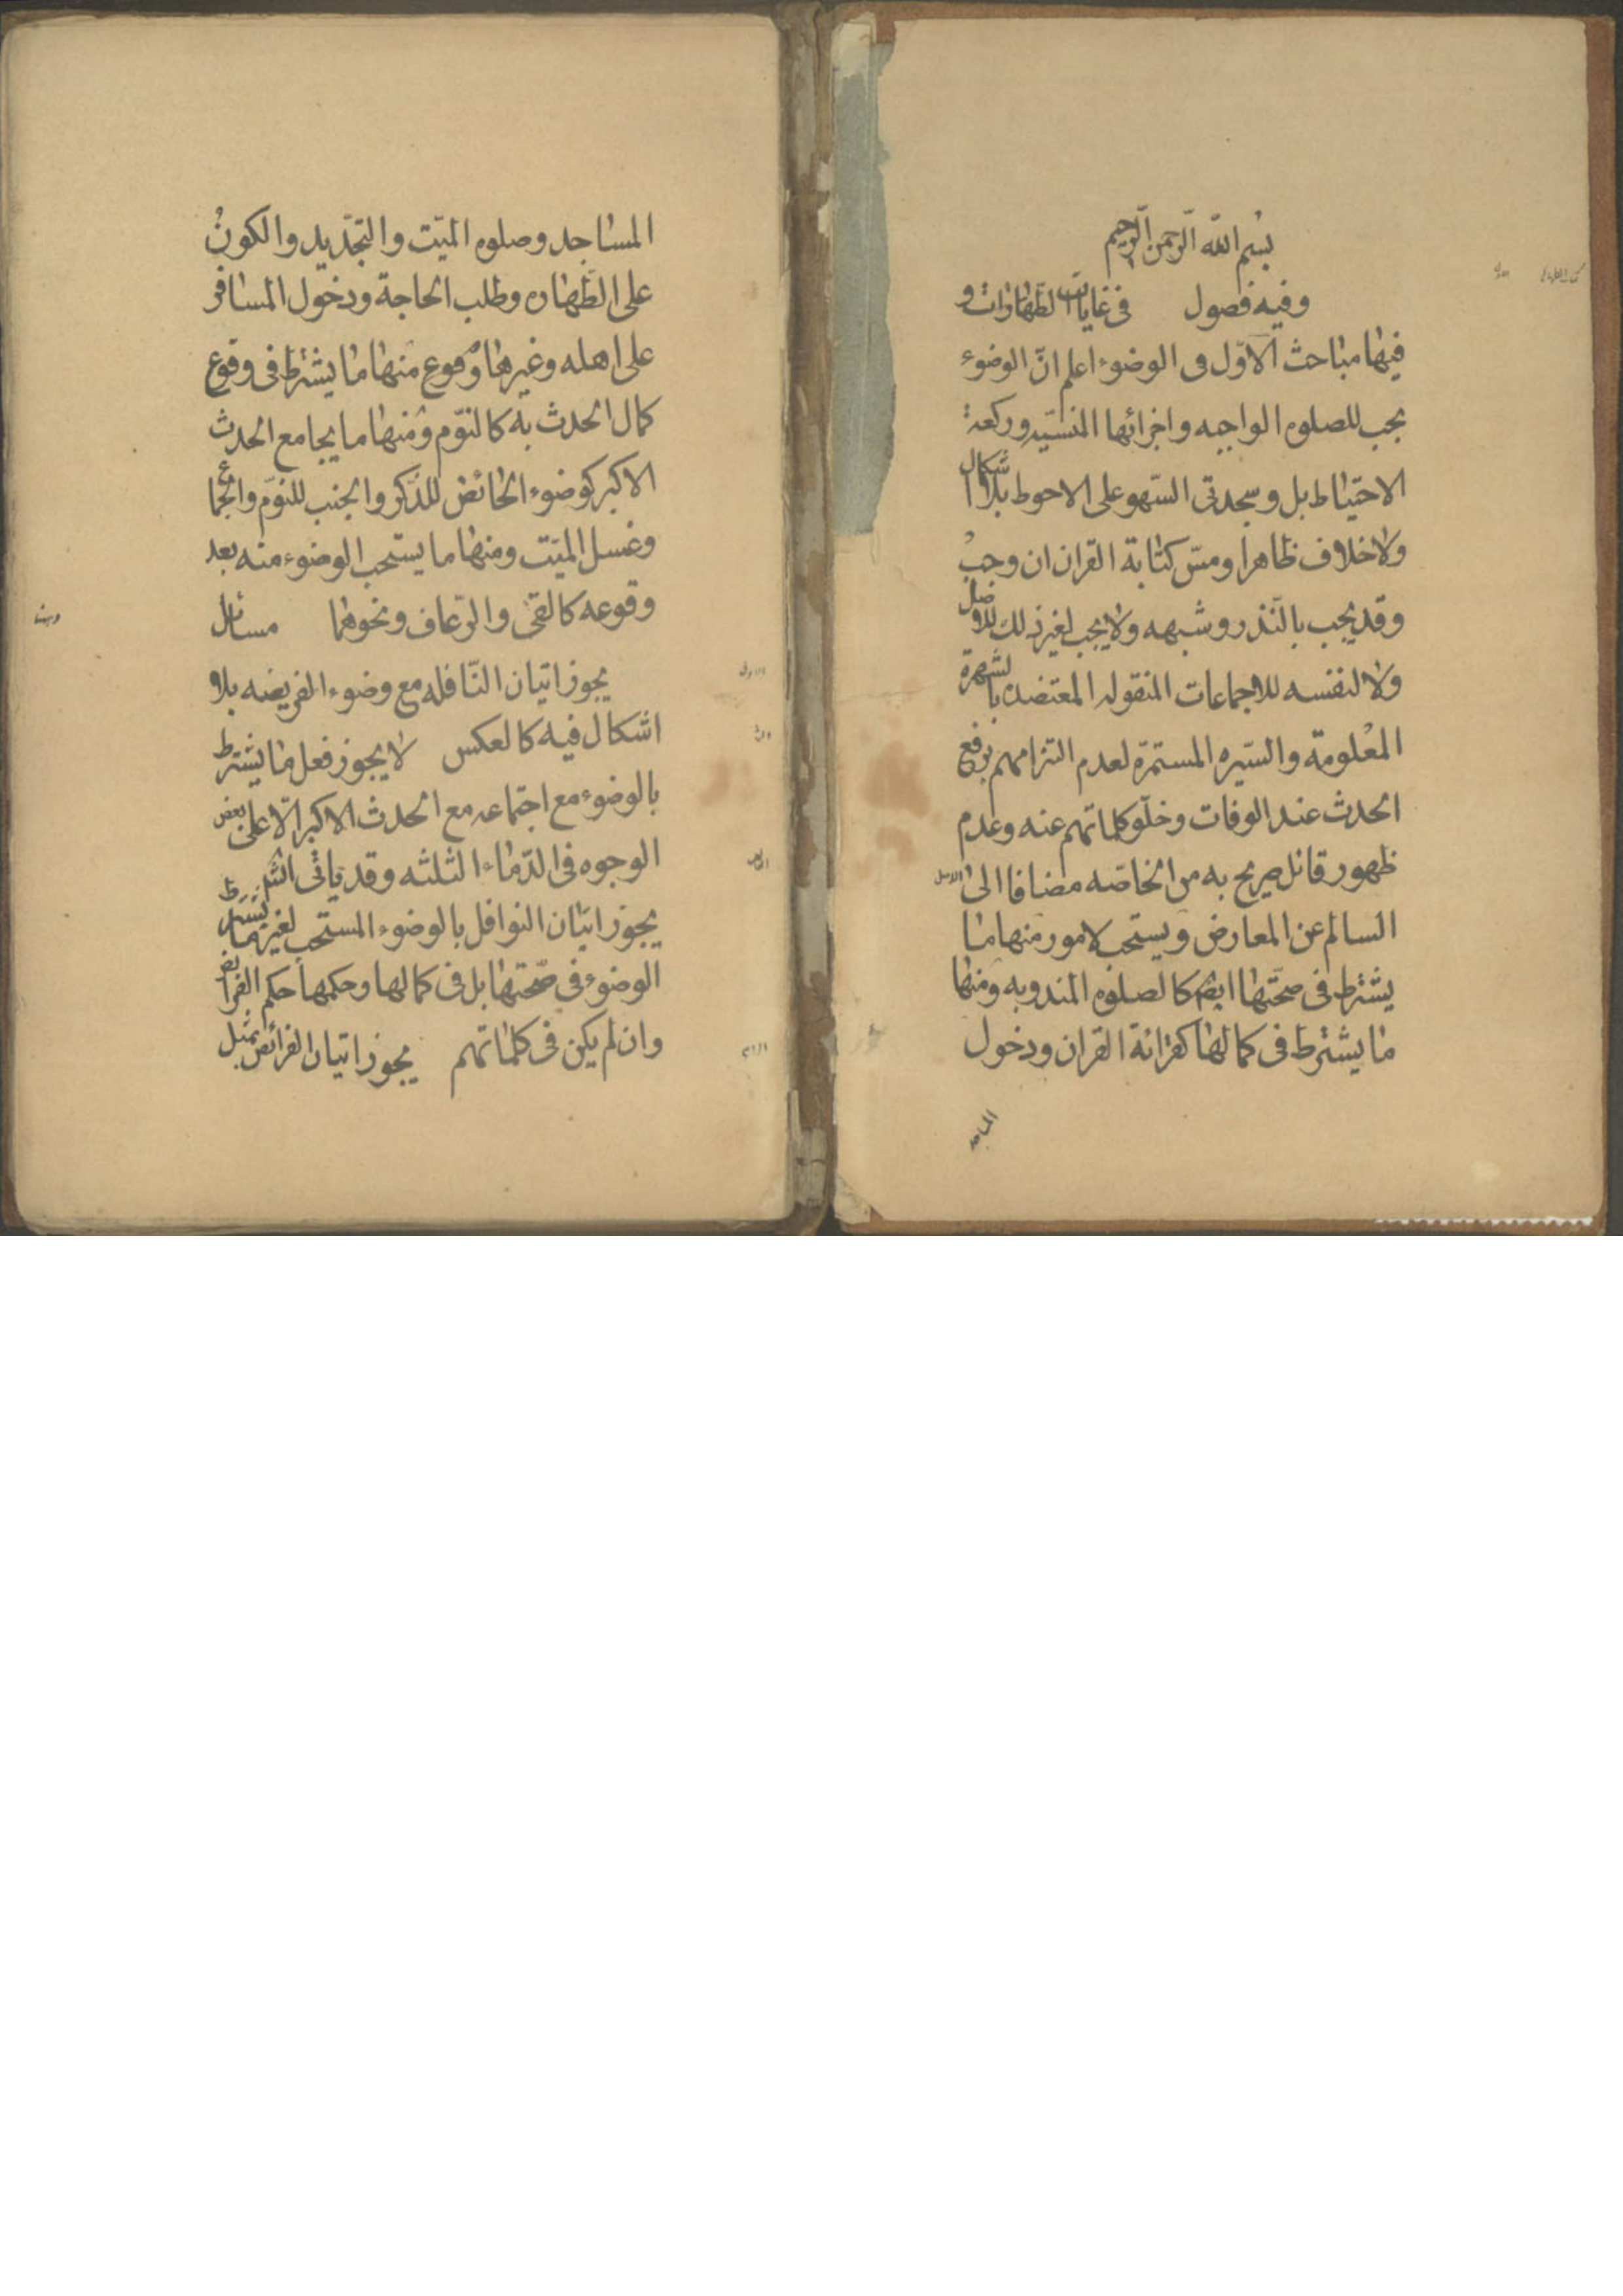 بسم الله الرّحمن الرّحيم
وفيه فصول في غايات الطّهارات و
فيها مباحث الاوّل في الوضوء اعلم انّ الوضوء
يجب للصلوه الواجبه واجزائها المنسيّه وركعة
الاحتياط بل وسجدتى السّهو على الاحوط بلا اشكال
ولا خلاف ظاهرا ومسّ كتابة القران ان وجب
وقد يجب بالنّذر وشبهه ولا يجب لغير ذلك للاصل
ولا لنفسه للاجماعات المنقوله المعتضده بالشهرة
المعلومة والسّيره المستمرّة لعدم التزامهم برفع
الحدث عند الوفات وخلّو كلماتهم عنه وعدم
ظهور قائل صريح به من الخاصّه مضافا الى الاصل
السالم عن المعارض ويستحب لامور منها ما
يشترط في صحّتها ايضا كالصلوه المندوبه ومنها
ما يشترط في كمالها كقرائة القران ودخول
المساجد
المساجد وصلوه الميّت والتجديد والكون
على الطّهاره وطلب الحاجة ودخول المسافر
على اهله وغيرها ومنها ما يشترط في وقوع
كمال الحدث به كالنّوم ومنها ما يجامع الحدث
الاكبر كوضوء الحائض للذّكر والجنب للنّوم والجماع
وغسل الميّت ومنها ما يستحب الوضوء منه بعد
وقوعه كالقى والرّعاف ونحوهما مسائل
الاولى
يجوز اتيان النّافله مع وضوء الفريضه بلا
اشكال فيه كالعكس لا يجوز فعل ما يشترط
بالوضوء مع اجتماعه مع الحدث الاكبر الّا على بعض
الوجوه في الدّماء الثلثه وقد ياتى انشر
يجوز اتيان النوافل بالوضوء المستحب لغيرها مما يشترط
الوضوء في صحّتها بل في كمالها وحكمها حكم الفرائض
وان لم يكن في كلماتهم يجوز اتيان الفرائض بمثل